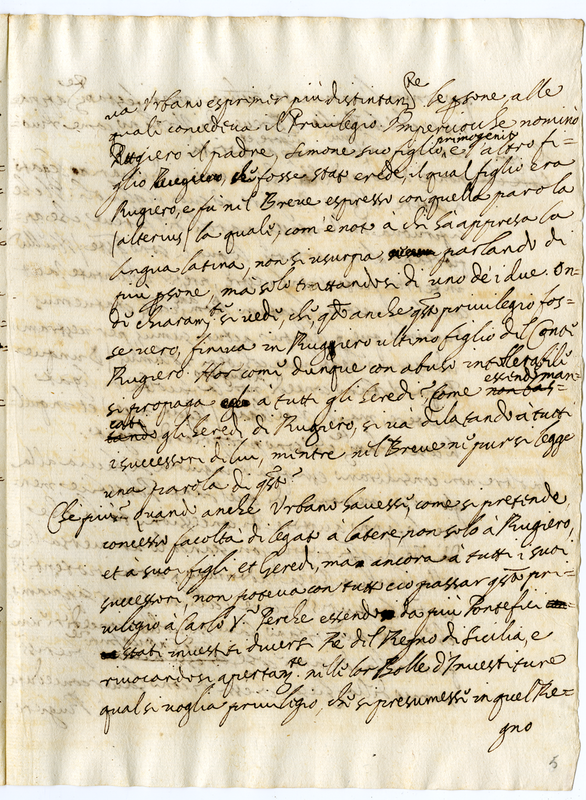 ua Urbano esprimer più distintam.te le psone, alle
quali concedeua il Priuilegio. Imperciò che nominò
Ruggiero il padre, Simone suo figlio primogenito, e altro fi=
glio che fosse stato erede, il qual figlio era
Rugiero, e fù nel Breue espresso con quella parola
(alterius) la quale, com'è noto à chi hà appresa la
lingua latina, non si usurpa, parlando di
più psone, mà solo trattandosi di uno de i due. On=
de chiaram.te si uede, che, q.do anche q.sto priuilegio fos=
se uero, finiua in Ruggiero ultimo figlio del Conte
Rugiero. Hor come dunque con abuso intollerabile
si propaga a tutti gli heredi? Come essendo man=
cati gli heredi di Ruggiero, si uà dilatando a tutti
i successori di lui, mentre nel Breue ne pur si legge
una parola di q.sto?
Che più? quando anche Urbano hauesse, come si pretende,
concesso facoltà di legato à latere non solo à Rugiero,
et a suoi figli et heredi, mà ancora à tutti i suoi
successori, non poteua con tutto ciò passar q.sto pri=
uilegio à Carlo V.° Perche essendo da più Pontefici
stati inuestiti diuersi Rè del Regno di Sicilia, e
riuocandosi apertam.te nelle lor Bolle d'Inuestiture
qual si uoglia priuilegio, che si presumesse in quel Re=
gno
5